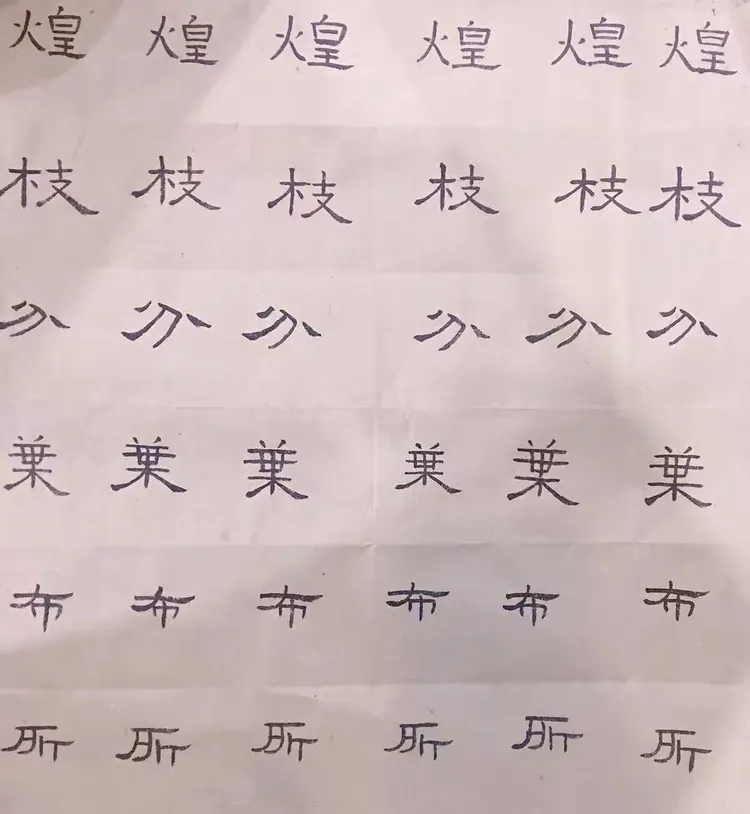 煌 煌 煌 煌 煌 煌
枝 枝 枝 枝 枝 枝
分 分 分 分 分 分
葉 葉 葉 葉 葉 葉
布 布 布 布 布 布
所 所 所 所 所 所